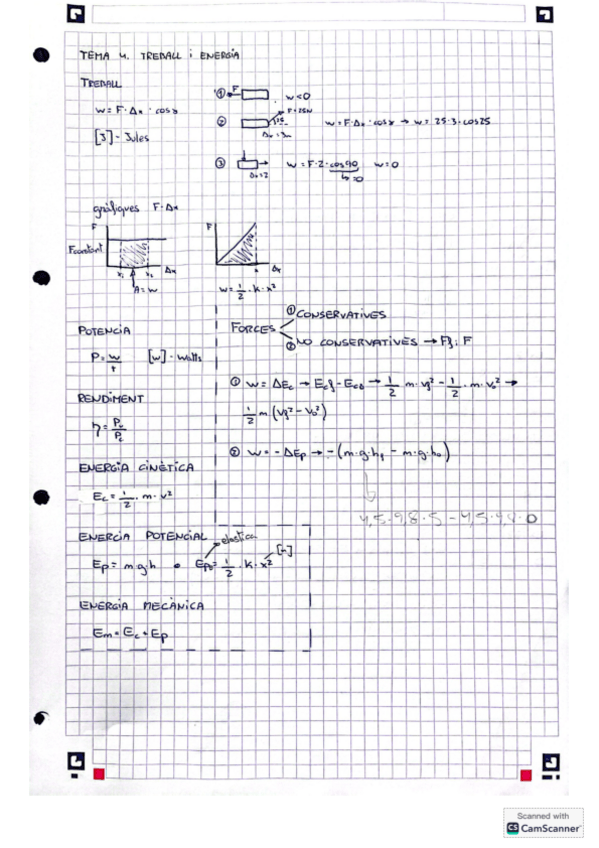 TEMA 4. TREBALL i ENERGIA
TREBALL
W = F · Δx · cos α
[J] - Jules
① F W < 0
② F = 25N 25 Δx = 3m W = F · Δx · cos α → W = 25 · 3 · cos 25
③ Δx = 2 W = F · 2 · cos 90 W = 0
↳ = 0
gràfiques F · Δx
F F
Fconstant
x₁ x₂ Δx x Δx
A = W W = 1/2 · k · x²
FORCES
① CONSERVATIVES
② NO CONSERVATIVES → Ff i F
POTÈNCIA
P = W/t [W] - Watts
① W = ΔEc → Ecf - Eco → 1/2 m · vf² - 1/2 · m · vo² →
1/2 m (vf² - vo²)
RENDIMENT
η = Pu/Pc
② W = - ΔEp → - (m · g · hf - m · g · ho)
ENERGIA CINÈTICA
Ec = 1/2 · m · v²
4,5 · 9,8 · 5 - 4,5 · 9,8 · 0
ENERGIA POTENCIAL elastica
Ep = m · g · h • Epe = 1/2 · k · x² [m]
ENERGIA MECÀNICA
Em = Ec + Ep
Scanned with
CS CamScanner